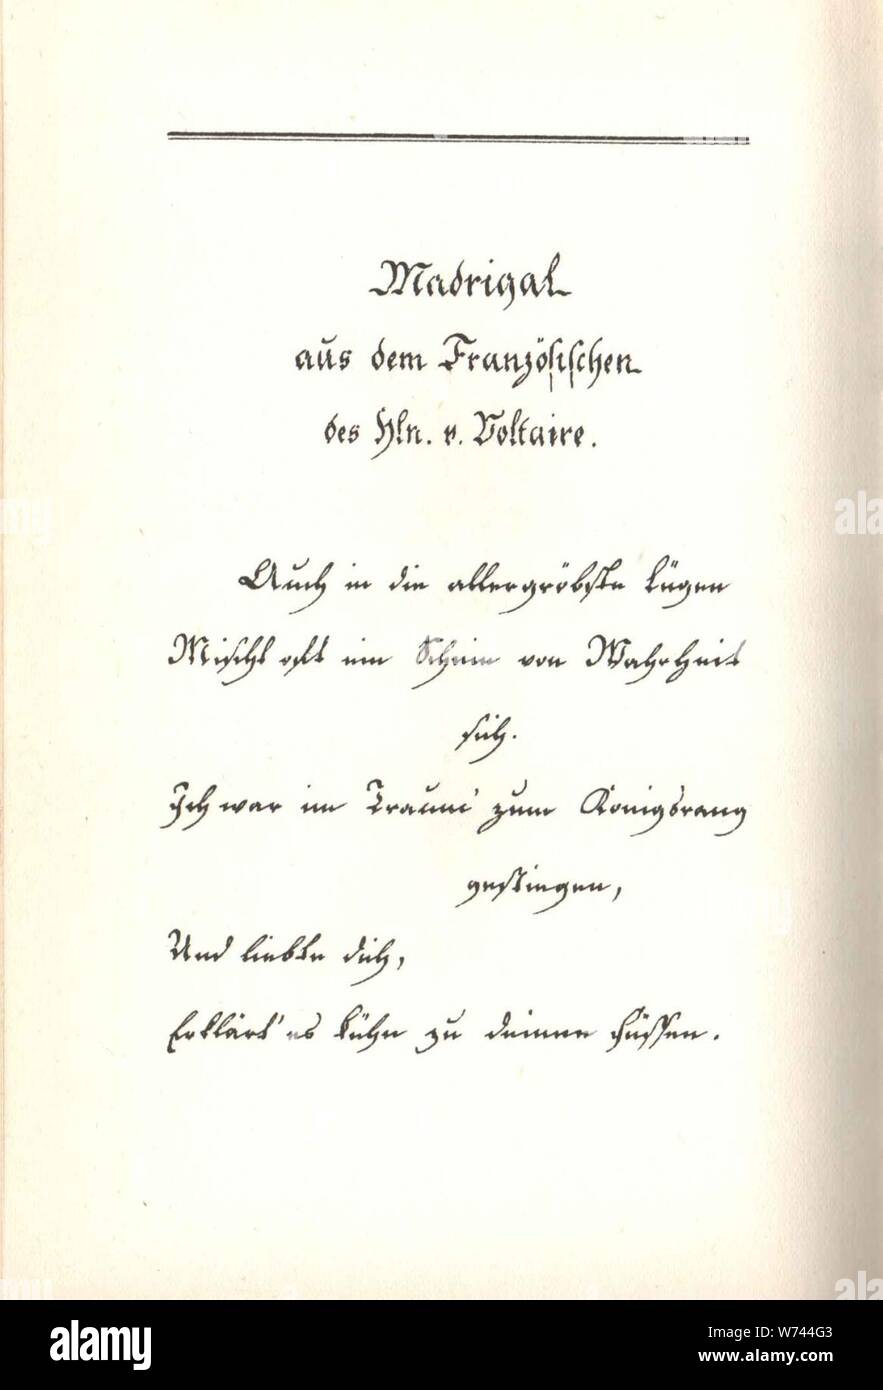 Madrigal
aus dem Französischen
des Hln. v. Voltaire.
Auch in die allergröbste Lügen
Mischt oft ein Schein von Wahrheit
sich.
Ich war im Traum' zum Königsrang
gestiegen,
Und liebte dich,
Erklärt' es kühn zu deinen Füssen.
alamy
Image ID: W744G3
www.alamy.com